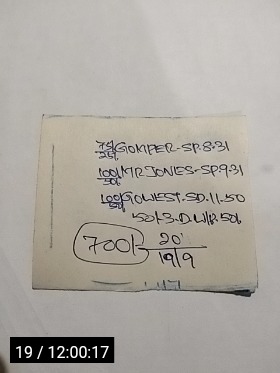 75/25% GOMPER-SP.8.31
100/50% MR JONES-SP.9.31
100/50% GOWEST.SD.11.50
50/-3.D.W/P.50%
700/- 20'
19/9
19 / 12:00:17